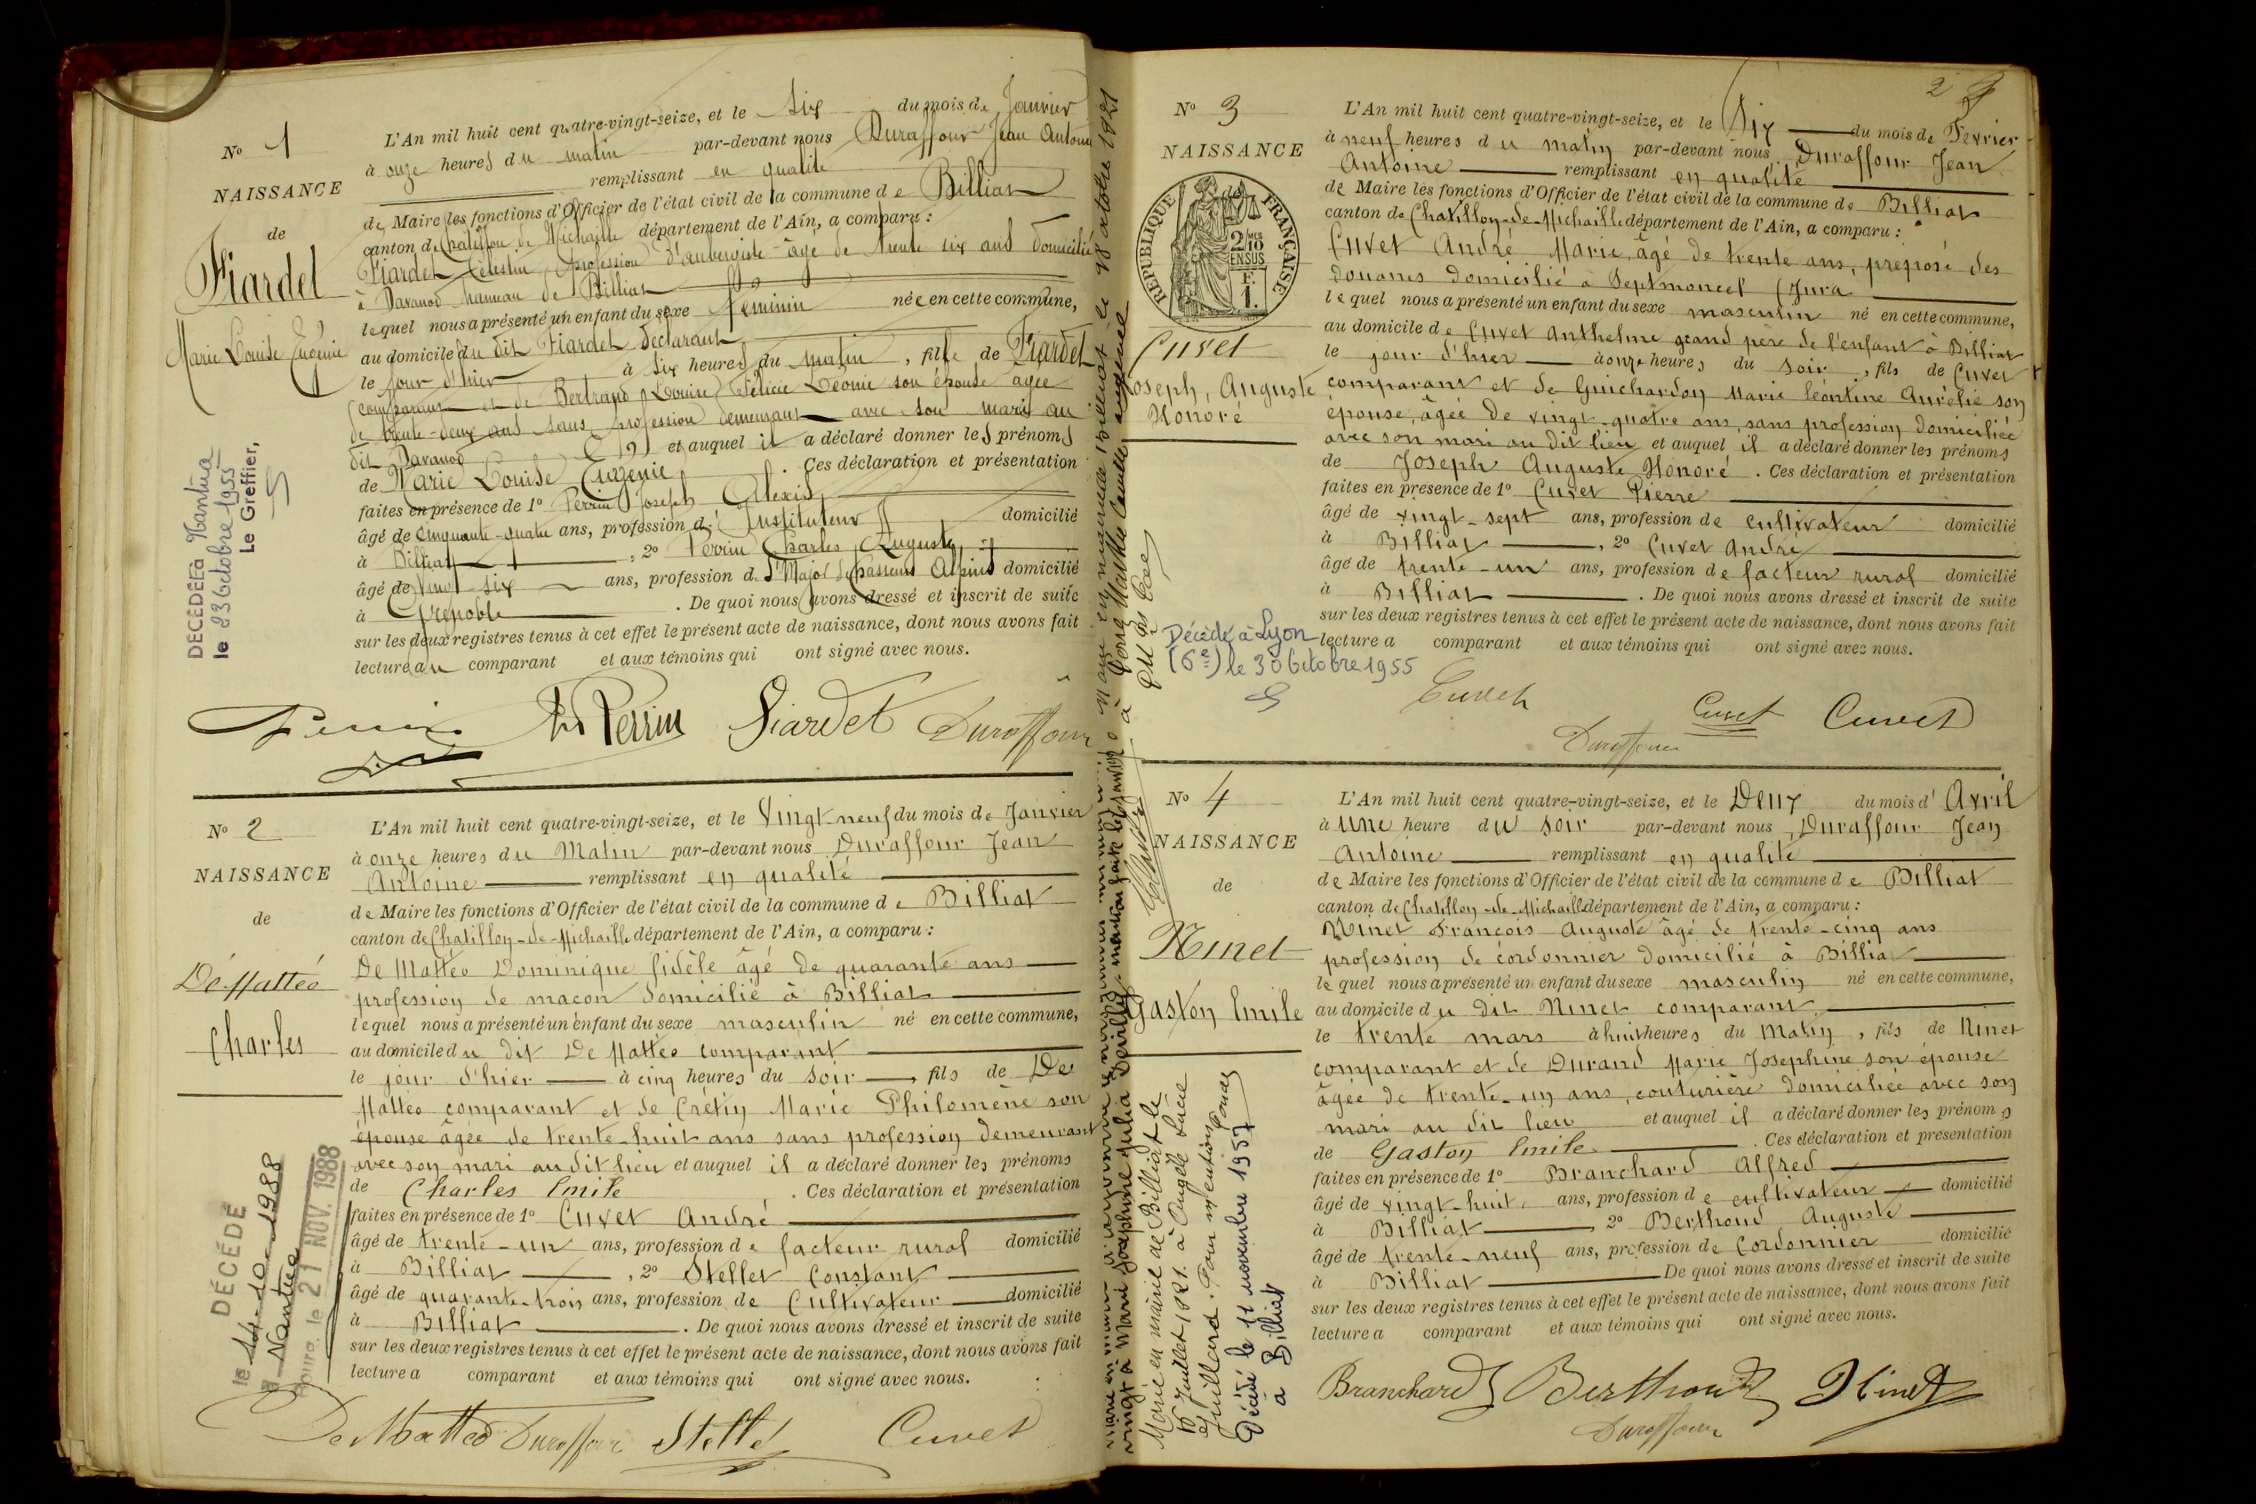 N° 1
NAISSANCE
de
Fiardet
Marie Louise Eugénie
DÉCÉDÉE à Nantua
le 23 octobre 1955
Le Greffier,
L'An mil huit cent quatre-vingt-seize, et le six du mois de Janvier
à onze heures du matin par-devant nous Duraffour Jean Antoine
remplissant en qualité
de Maire les fonctions d'Officier de l'état civil de la commune de Billiat
canton de Chatillon de Michaille département de l'Ain, a comparu :
Fiardet Célestin profession d'aubergiste âgé de trente six ans domicilié
à Davanod hameau de Billiat
lequel nous a présenté un enfant du sexe féminin née en cette commune,
au domicile du dit Fiardet déclarant
le jour d'hier à six heures du matin, fille de Fiardet
comparant et de Bertrand Louise Félicie Léonie son épouse âgée
de trente-deux ans sans profession demeurant avec son mari au
dit Davanod et auquel il a déclaré donner les prénoms
de Marie Louise Eugénie . Ces déclaration et présentation
faites en présence de 1° Perrin Joseph Alexis
âgé de cinquante-quatre ans, profession d'Instituteur domicilié
à Billiat , 2° Perrin Charles Auguste
âgé de vingt-six ans, profession de St Major de chasseurs Alpins domicilié
à Grenoble . De quoi nous avons dressé et inscrit de suite
sur les deux registres tenus à cet effet le présent acte de naissance, dont nous avons fait
lecture au comparant et aux témoins qui ont signé avec nous.
Perrin Ch Perrin Fiardet Duraffour
N° 2
NAISSANCE
de
Dé Mattéo
Charles
DÉCÉDÉ
le 14-10-1988
à Nantua
le 21 NOV. 1988
L'An mil huit cent quatre-vingt-seize, et le Vingt-neuf du mois de Janvier
à onze heures du Matin par-devant nous Duraffour Jean
Antoine remplissant en qualité
de Maire les fonctions d'Officier de l'état civil de la commune de Billiat
canton de Chatillon-de-Michaille département de l'Ain, a comparu :
De Mattéo Dominique fidèle âgé de quarante ans
profession de maçon domicilié à Billiat
lequel nous a présenté un enfant du sexe masculin né en cette commune,
au domicile du dit De Mattéo comparant
le jour d'hier à cinq heures du soir, fils de De
Mattéo comparant et de Crétin Marie Philomène son
épouse âgée de trente-huit ans sans profession demeurant
avec son mari au dit lieu et auquel il a déclaré donner les prénoms
de Charles Emile . Ces déclaration et présentation
faites en présence de 1° Cuvet André
âgé de trente-un ans, profession de facteur rural domicilié
à Billiat , 2° Stellet Constant
âgé de quarante-trois ans, profession de Cultivateur domicilié
à Billiat . De quoi nous avons dressé et inscrit de suite
sur les deux registres tenus à cet effet le présent acte de naissance, dont nous avons fait
lecture a comparant et aux témoins qui ont signé avec nous.
De Mattéo Duraffour Stellet Cuvet
2
N° 3
NAISSANCE
RÉPUBLIQUE FRANÇAISE
2/10 EN SUS
1 F.
Cuvet
Joseph, Auguste
Honoré
Décédé à Lyon
(6e) le 30 Octobre 1955
L'An mil huit cent quatre-vingt-seize, et le Six du mois de Février
à neuf heures du matin par-devant nous Duraffour Jean
Antoine remplissant en qualité
de Maire les fonctions d'Officier de l'état civil de la commune de Billiat
canton de Chatillon-de-Michaille département de l'Ain, a comparu :
Cuvet André Marie, âgé de trente ans, préposé des
douanes domicilié à Septmoncel (Jura
lequel nous a présenté un enfant du sexe masculin né en cette commune,
au domicile de Cuvet Anthelme grand père de l'enfant à Billiat
le jour d'hier à onze heures du soir, fils de Cuvet
comparant et de Guichardon Marie léontine Aurélie son
épouse, âgée de vingt-quatre ans, sans profession domiciliée
avec son mari au dit lieu et auquel il a déclaré donner les prénoms
de Joseph Auguste Honoré . Ces déclaration et présentation
faites en présence de 1° Cuvet Pierre
âgé de vingt-sept ans, profession de cultivateur domicilié
à Billiat , 2° Cuvet André
âgé de trente-un ans, profession de facteur rural domicilié
à Billiat . De quoi nous avons dressé et inscrit de suite
sur les deux registres tenus à cet effet le présent acte de naissance, dont nous avons fait
lecture a comparant et aux témoins qui ont signé avec nous.
Cuvet Duraffour Cuvet Cuvet
N° 4
NAISSANCE
de
Ninet
Gaston Emile
Marié en mairie de Billiat le
16 Juillet 1921 à Angèle Lucie
Juillard. Pour mention
Décédé le 11 novembre 1957
à Billiat
L'An mil huit cent quatre-vingt-seize, et le Deux du mois d'Avril
à une heure du soir par-devant nous Duraffour Jean
Antoine remplissant en qualité
de Maire les fonctions d'Officier de l'état civil de la commune de Billiat
canton de Chatillon-de-Michaille département de l'Ain, a comparu :
Ninet François Auguste âgé de trente-cinq ans
profession de cordonnier domicilié à Billiat
lequel nous a présenté un enfant du sexe masculin né en cette commune,
au domicile du dit Ninet comparant
le trente mars à huit heures du Matin, fils de Ninet
comparant et de Durand Marie Josephine son épouse
âgée de trente-un ans, couturière domiciliée avec son
mari au dit lieu et auquel il a déclaré donner les prénoms
de Gaston Emile . Ces déclaration et présentation
faites en présence de 1° Branchard Alfred
âgé de vingt-huit ans, profession de cultivateur domicilié
à Billiat , 2° Berthoud Auguste
âgé de trente-neuf ans, profession de Cordonnier domicilié
à Billiat De quoi nous avons dressé et inscrit de suite
sur les deux registres tenus à cet effet le présent acte de naissance, dont nous avons fait
lecture a comparant et aux témoins qui ont signé avec nous.
Branchard Berthoud Ninet
Duraffour